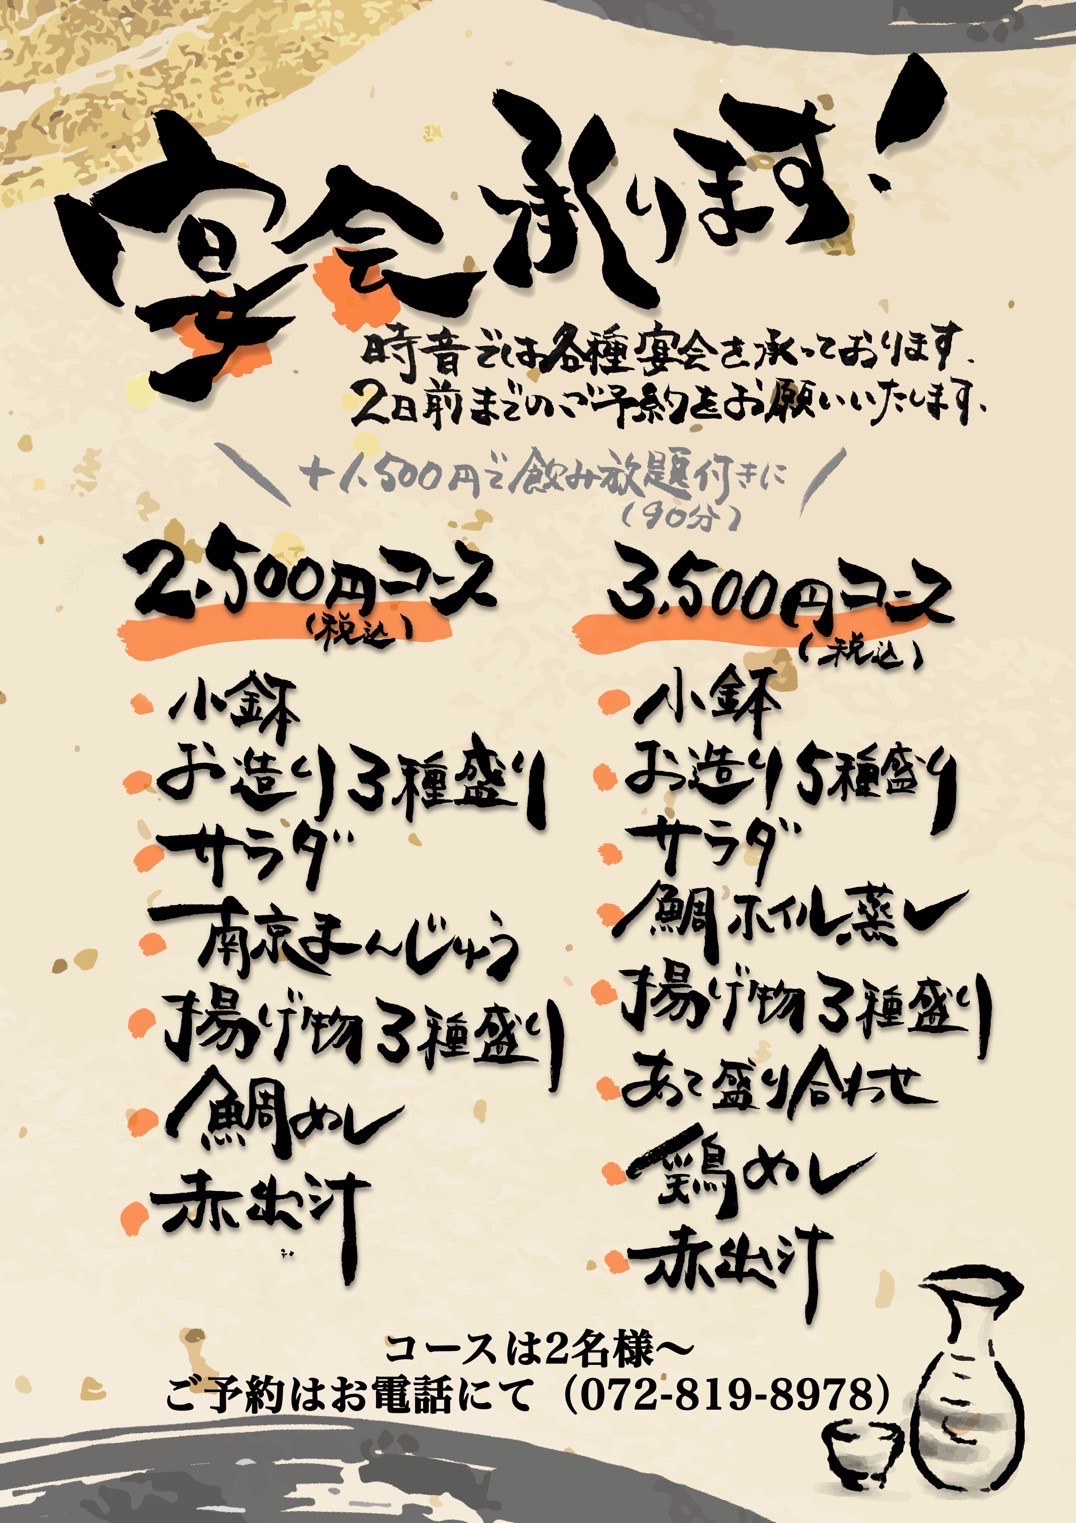 宴会承ります!
時音では各種宴会を承っております.
2日前までのご予約をお願いいたします.
+1,500円で飲み放題付きに
(90分)
2,500円コース
(税込)
小鉢
お造り3種盛り
サラダ
南京まんじゅう
揚げ物3種盛り
鯛めし
赤出汁
3,500円コース
(税込)
小鉢
お造り5種盛り
サラダ
鯛ホイル蒸し
揚げ物3種盛り
あて盛り合わせ
鶏めし
赤出汁
コースは2名様〜
ご予約はお電話にて（072-819-8978）